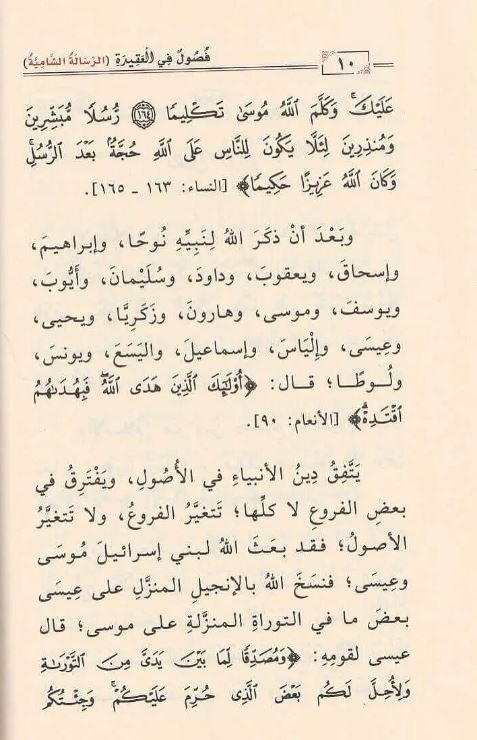 ١٠ فُصُولٌ فِي الْعَقِيدَةِ (الرِّسَالَةُ الشَّامِيَّةُ)
عَلَيْكَ ۚ وَكَلَّمَ ٱللَّهُ مُوسَىٰ تَكْلِيمًا ۝١٦٤ رُّسُلًا مُّبَشِّرِينَ
وَمُنذِرِينَ لِئَلَّا يَكُونَ لِلنَّاسِ عَلَى ٱللَّهِ حُجَّةٌۢ بَعْدَ ٱلرُّسُلِ ۚ
وَكَانَ ٱللَّهُ عَزِيزًا حَكِيمًا﴾ [النساء: ١٦٣ ـ ١٦٥].
وبَعْدَ أنْ ذكَرَ اللهُ لِنَبِيِّهِ نُوحًا، وإبراهيمَ،
وإسحاقَ، ويعقوبَ، وداودَ، وسُلَيْمانَ، وأيُّوبَ،
ويوسفَ، وموسى، وهارونَ، وزَكَرِيَّا، ويحيى،
وعِيسَى، وإِلْيَاسَ، وإسماعيلَ، واليَسَعَ، ويونسَ،
ولُوطًا؛ قال: ﴿أُو۟لَـٰٓئِكَ ٱلَّذِينَ هَدَى ٱللَّهُ ۖ فَبِهُدَىٰهُمُ
ٱقْتَدِهْ ۗ﴾ [الأنعام: ٩٠].
يَتَّفِقُ دِينُ الأنبياءِ في الأُصُولِ، ويَفْتَرِقُ في
بعضِ الفروعِ لا كلِّها؛ تَتغيَّرُ الفروعُ، ولا تَتغيَّرُ
الأصولُ؛ فقد بعَثَ اللهُ لبني إسرائيلَ مُوسَى
وعِيسَى؛ فنسَخَ اللهُ بالإنجيلِ المنزَّلِ على عِيسَى
بعضَ ما في التوراةِ المنزَّلةِ على موسى؛ قال
عيسى لقومِهِ: ﴿وَمُصَدِّقًا لِّمَا بَيْنَ يَدَىَّ مِنَ ٱلتَّوْرَىٰةِ
وَلِأُحِلَّ لَكُم بَعْضَ ٱلَّذِى حُرِّمَ عَلَيْكُمْ ۚ وَجِئْتُكُم